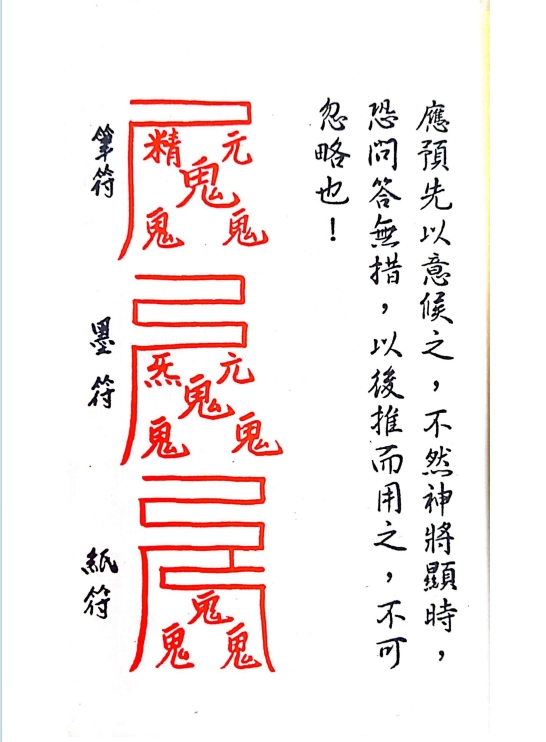 應預先以意候之，不然神將顯時，
恐問答無措，以後推而用之，不可
忽略也！
元
精
鬼
鬼
鬼
筆符
元
炁
鬼
鬼
鬼
墨符
鬼
鬼
鬼
紙符